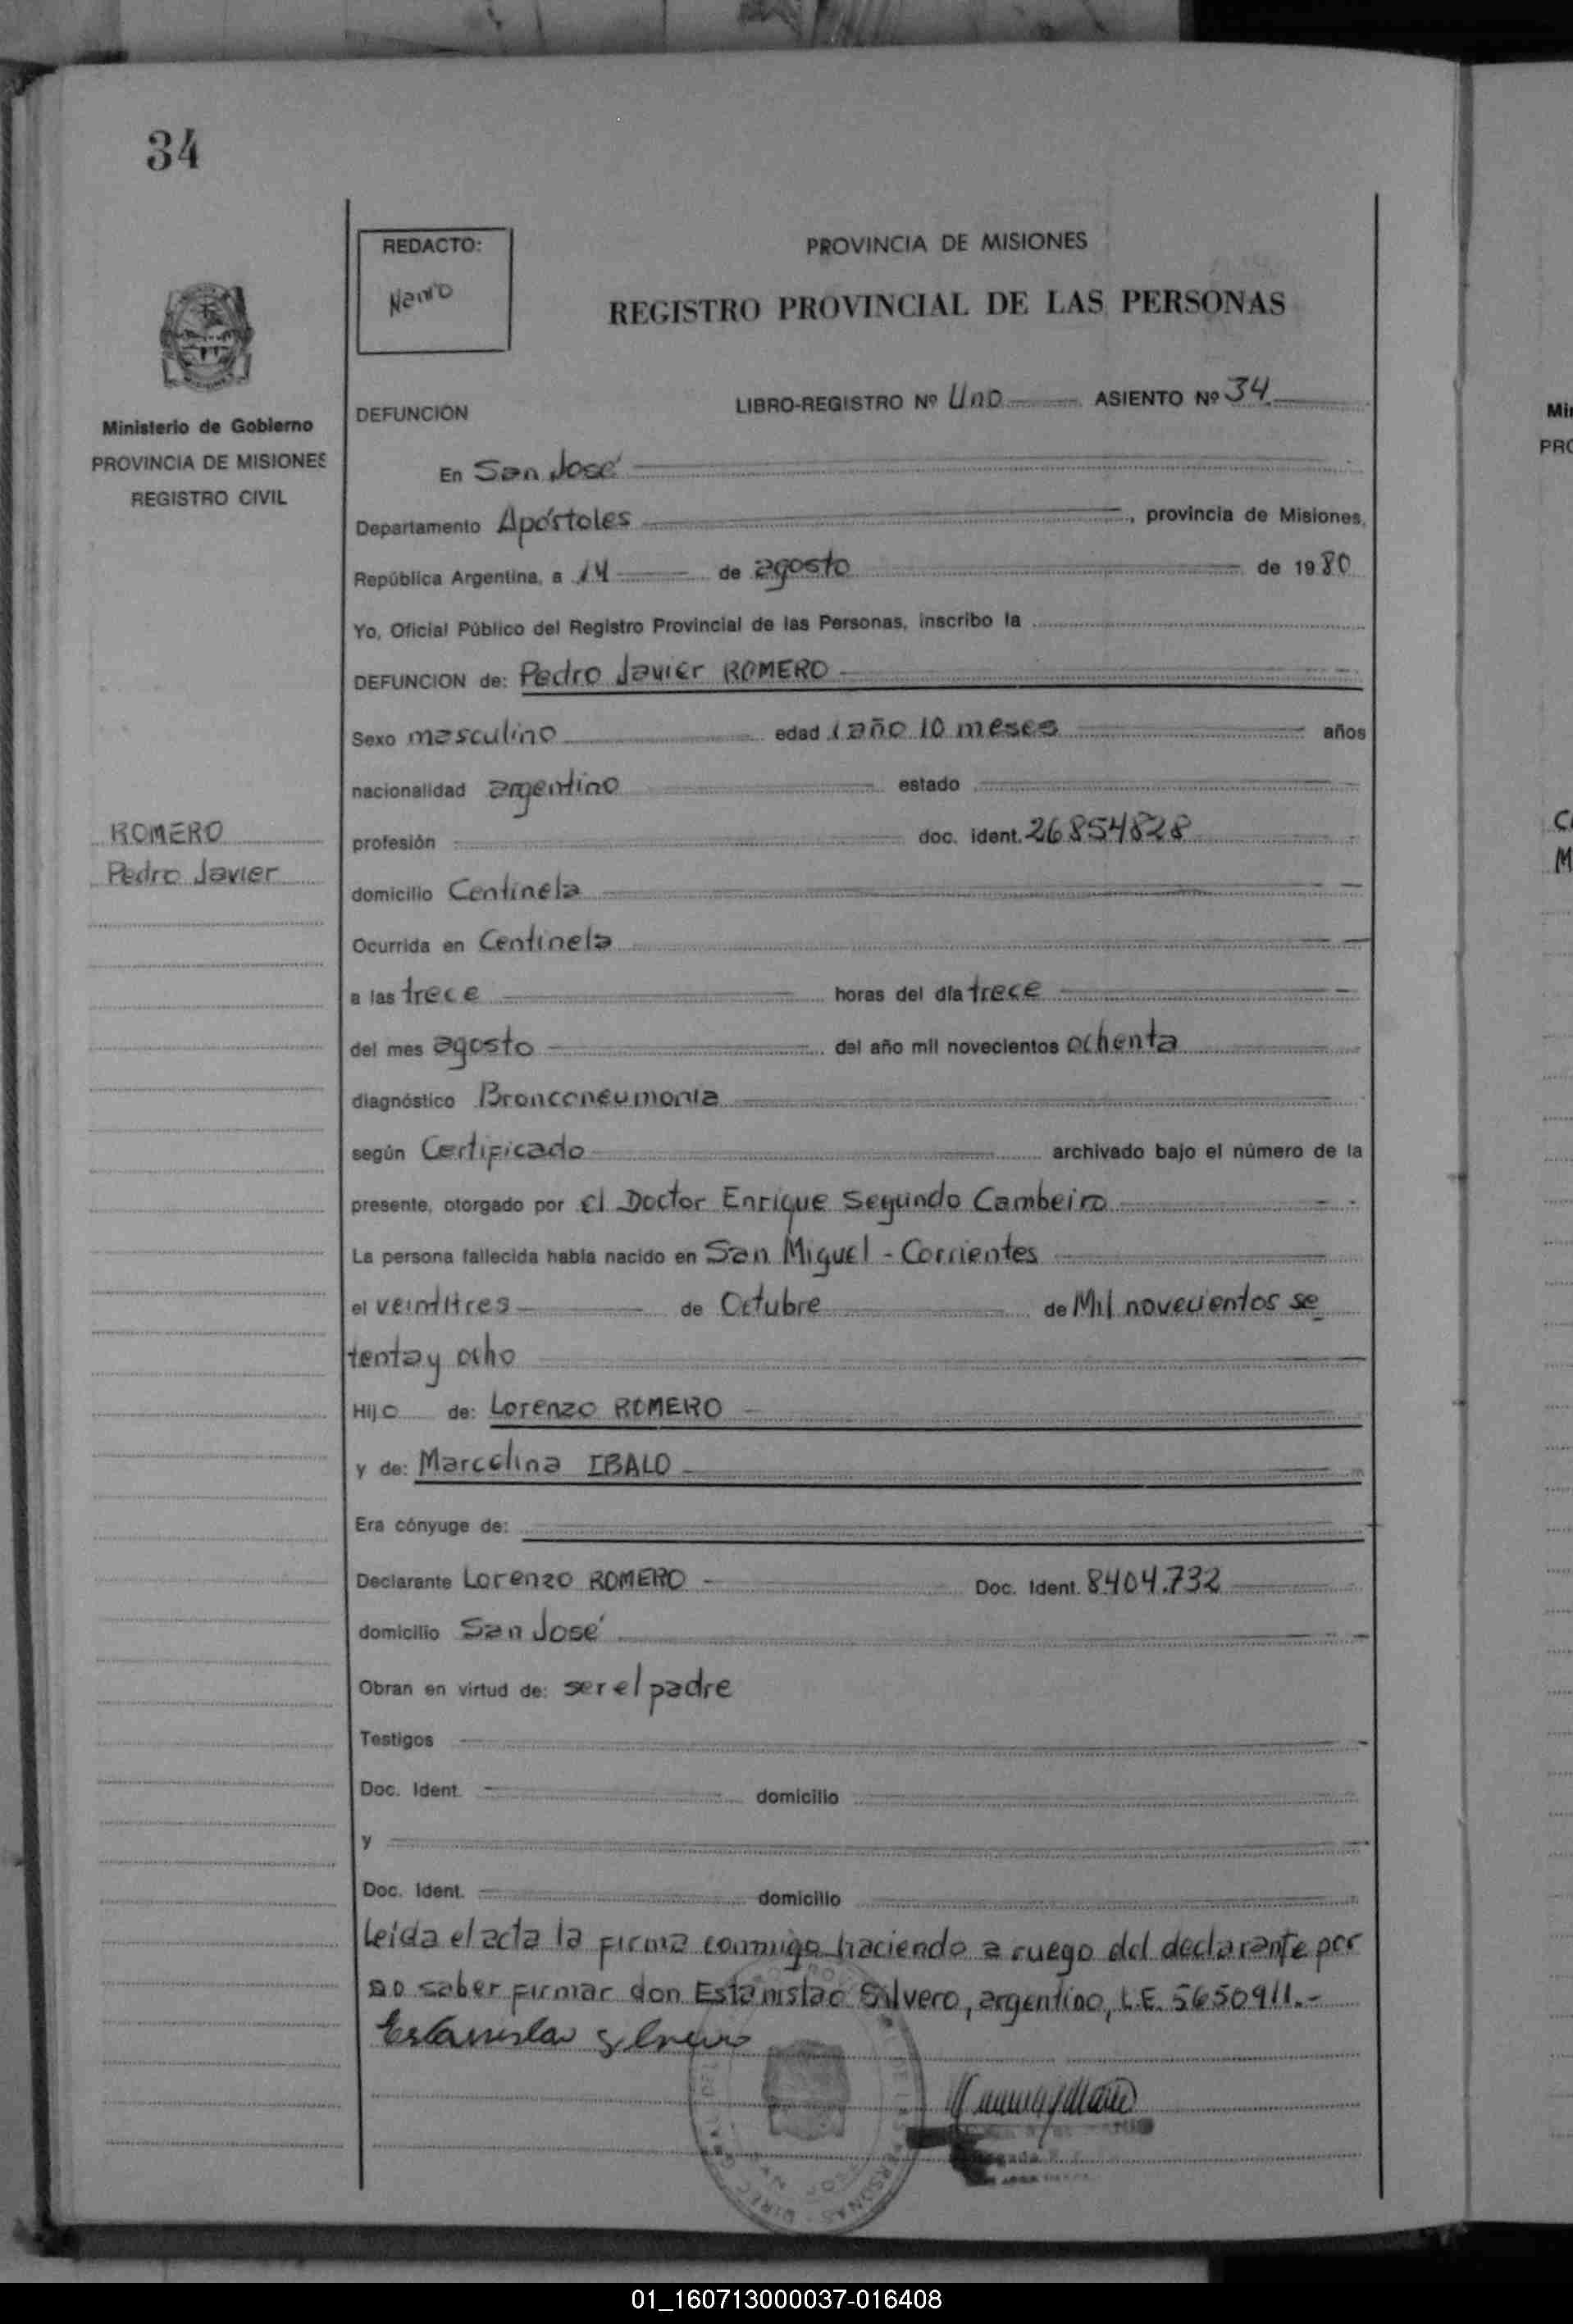 34
REDACTO:
PROVINCIA DE MISIONES
REGISTRO PROVINCIAL DE LAS PERSONAS
Ministerio de Gobierno
PROVINCIA DE MISIONES
REGISTRO CIVIL
DEFUNCION LIBRO-REGISTRO Nº Uno ASIENTO Nº 34
En San José
Departamento Apóstoles, provincia de Misiones,
República Argentina, a 14 de agosto de 1980
Yo, Oficial Público del Registro Provincial de las Personas, inscribo la
DEFUNCION de: Pedro Javier ROMERO
Sexo masculino edad 1 año 10 meses años
nacionalidad argentino estado
ROMERO
Pedro Javier
profesión doc. ident. 26854828
domicilio Centinela
Ocurrida en Centinela
a las trece horas del día trece
del mes agosto del año mil novecientos ochenta
diagnóstico Bronconeumonia
según Certificado archivado bajo el número de la
presente, otorgado por el Doctor Enrique Segundo Cambeiro
La persona fallecida había nacido en San Miguel - Corrientes
el veintitres de Octubre de Mil novecientos se
tenta y ocho
Hijo de: Lorenzo ROMERO
y de: Marcelina IBALO
Era cónyuge de:
Declarante Lorenzo ROMERO Doc. Ident. 8404.732
domicilio San José
Obran en virtud de: ser el padre
Testigos
Doc. Ident. domicilio
y
Doc. Ident. domicilio
Leída el acta la firma conmigo haciendo a ruego del declarante por
no saber firmar don Estanislao Silvero, argentino, L.E. 5650911.-
Estanislao Silvero
01_160713000037-016408